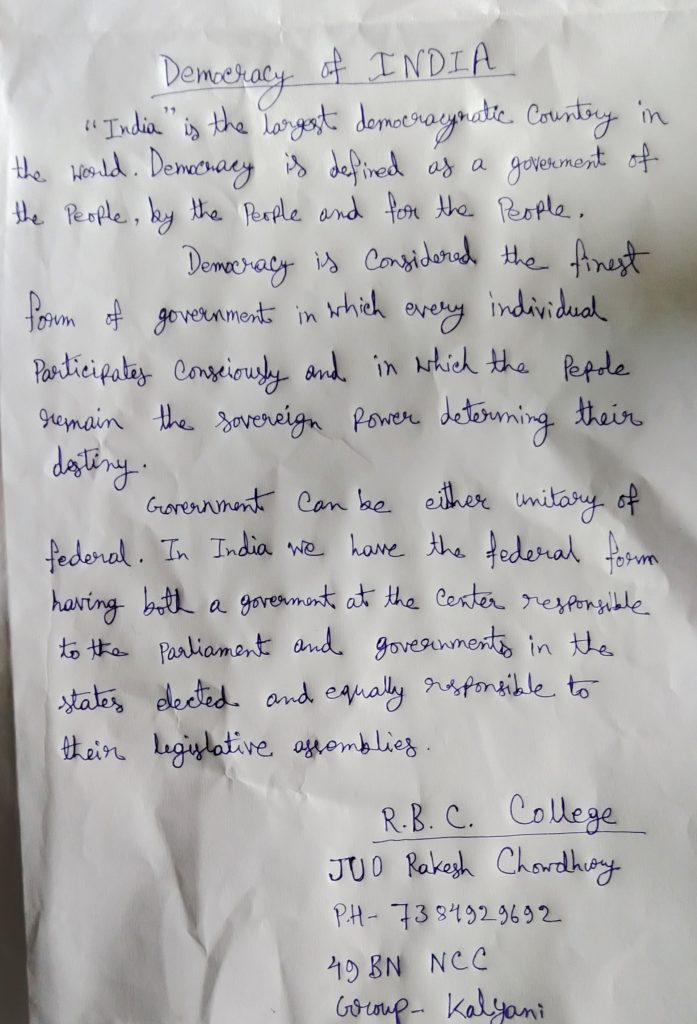 Democracy of INDIA
"India" is the largest democracynatic Country in
the world. Democracy is defined as a goverment of
the People, by the People and for the People.
Democracy is Considered the finest
form of government in which every individual
Participates Consciously and in which the Pepole
remain the sovereign Power determing their
destiny.
Government Can be either unitary of
federal. In India we have the federal form
having both a goverment at the Center responsible
to the Parliament and governments in the
states elected and equally responsible to
their legislative assemblies.
R.B.C. College
JUO Rakesh Chowdhury
PH- 7384929692
49 BN NCC
Group- Kalyani